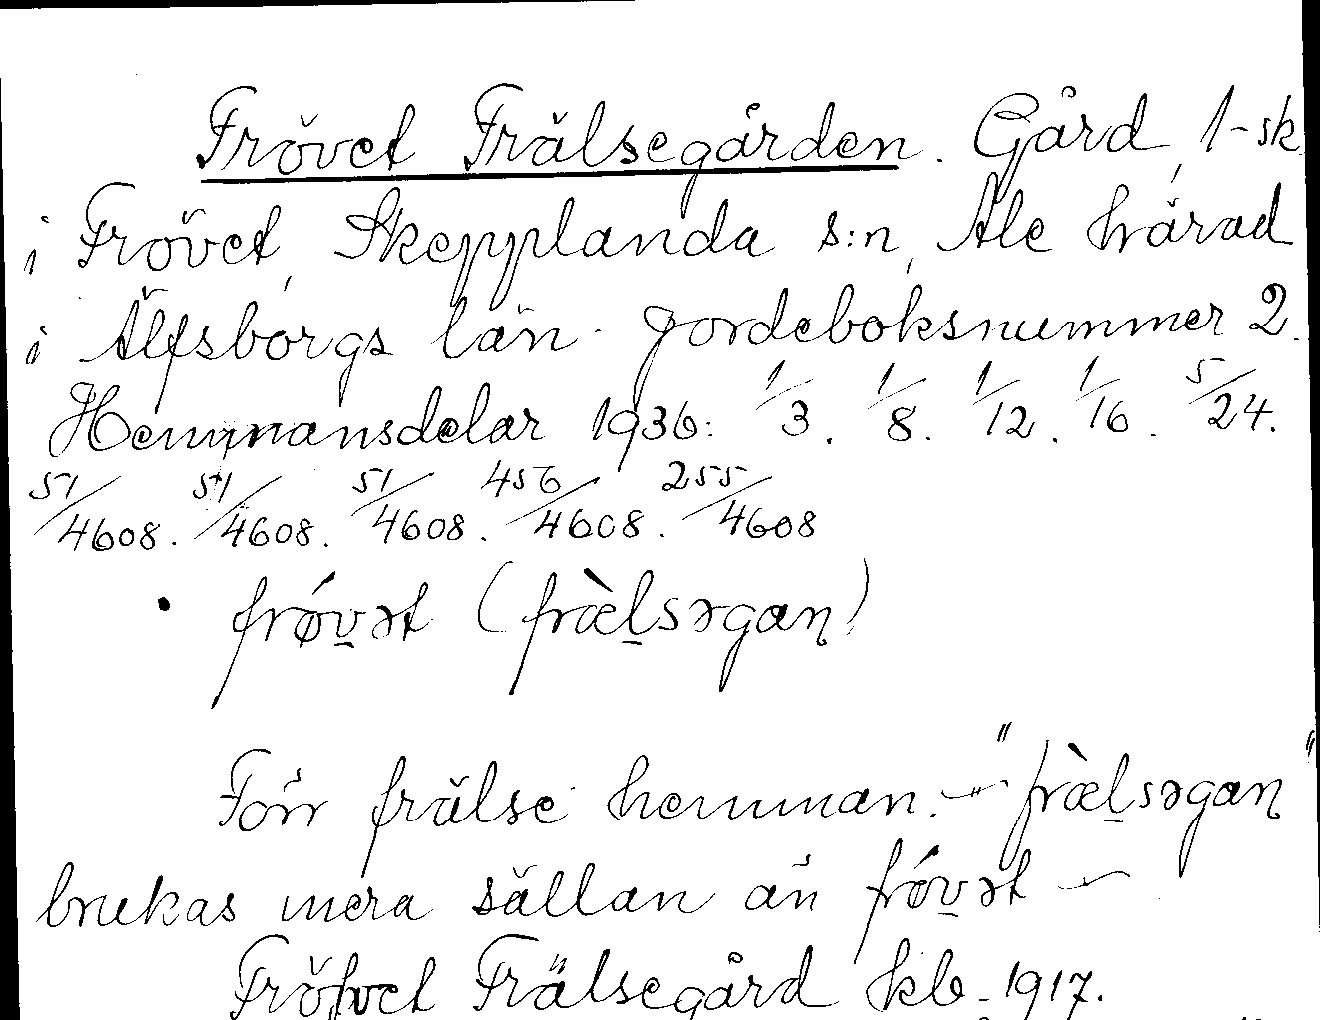 Frövet Frälsegården. Gård, 1-sk.
i Frövet, Skepplanda s:n, Ale härad
i Älfsborgs län. Jordeboksnummer 2.
Hemmansdelar 1936: 1/3. 1/8. 1/12. 1/16. 5/24.
51/4608. 51/4608. 51/4608. 456/4608. 255/4608
• frǿv̲ət (fræ̀l̲səgaɳ)
Förr frälse hemman. — "fræ̀l̲səgaɳ"
brukas mera sällan än frǿv̲ət —
Fröfvet Frälsegård kb. 1917.